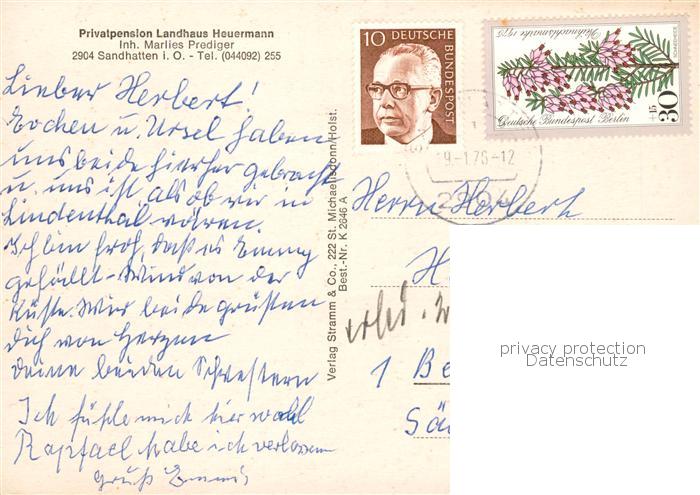 Privatpension Landhaus Heuermann
Inh. Marlies Prediger
2904 Sandhatten i. O. - Tel. (044092) 255
Lieber Herbert!
Jochen u. Ursel haben
uns beide hierher gebracht
u. uns ist, als ob wir in
Lindenthal wären.
Ich bin froh, daß es Emmy
gefällt - Wind von der
Küste. Wir beide grüßen
dich von Herzen
deine beiden Schwestern
Ich fühle mich hier wohl
habe ich verlassen
Gruß
Verlag Stramm & Co., 222 St. Michaelisdonn/Holst.
Best.-Nr. K 2646 A
10 DEUTSCHE
BUNDESPOST
Weihnachtsmarke 1975
30
+15
Deutsche Bundespost Berlin
9-1.76-12
Herrn Herbert
H
1 Be
privacy protection
Datenschutz